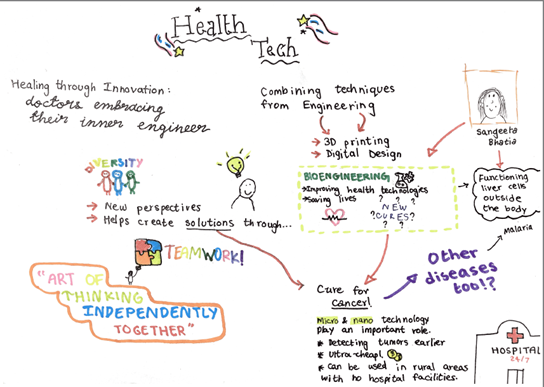 Health
Tech
Healing through Innovation:
doctors embracing
their inner engineer
Combining techniques
from Engineering
→ 3D printing
→ Digital Design
Sangeeta
Bhatia
VERSITY
→ New perspectives
→ Helps create solutions through...
BIOENGINEERING
*Improving health technologies
*Saving lives
? ? ?
NEW
?CURES?
? ?
Functioning
liver cells
outside
the body
malaria
TEAMWORK!
"ART OF
THINKING
INDEPENDENTLY
TOGETHER"
Cure for
cancer!
Other
diseases
too!?
Micro & nano technology
play an important role.
* Detecting tumors earlier
* Ultra-cheap!
* can be used in rural areas
with no hospital facilities.
HOSPITAL
24/7